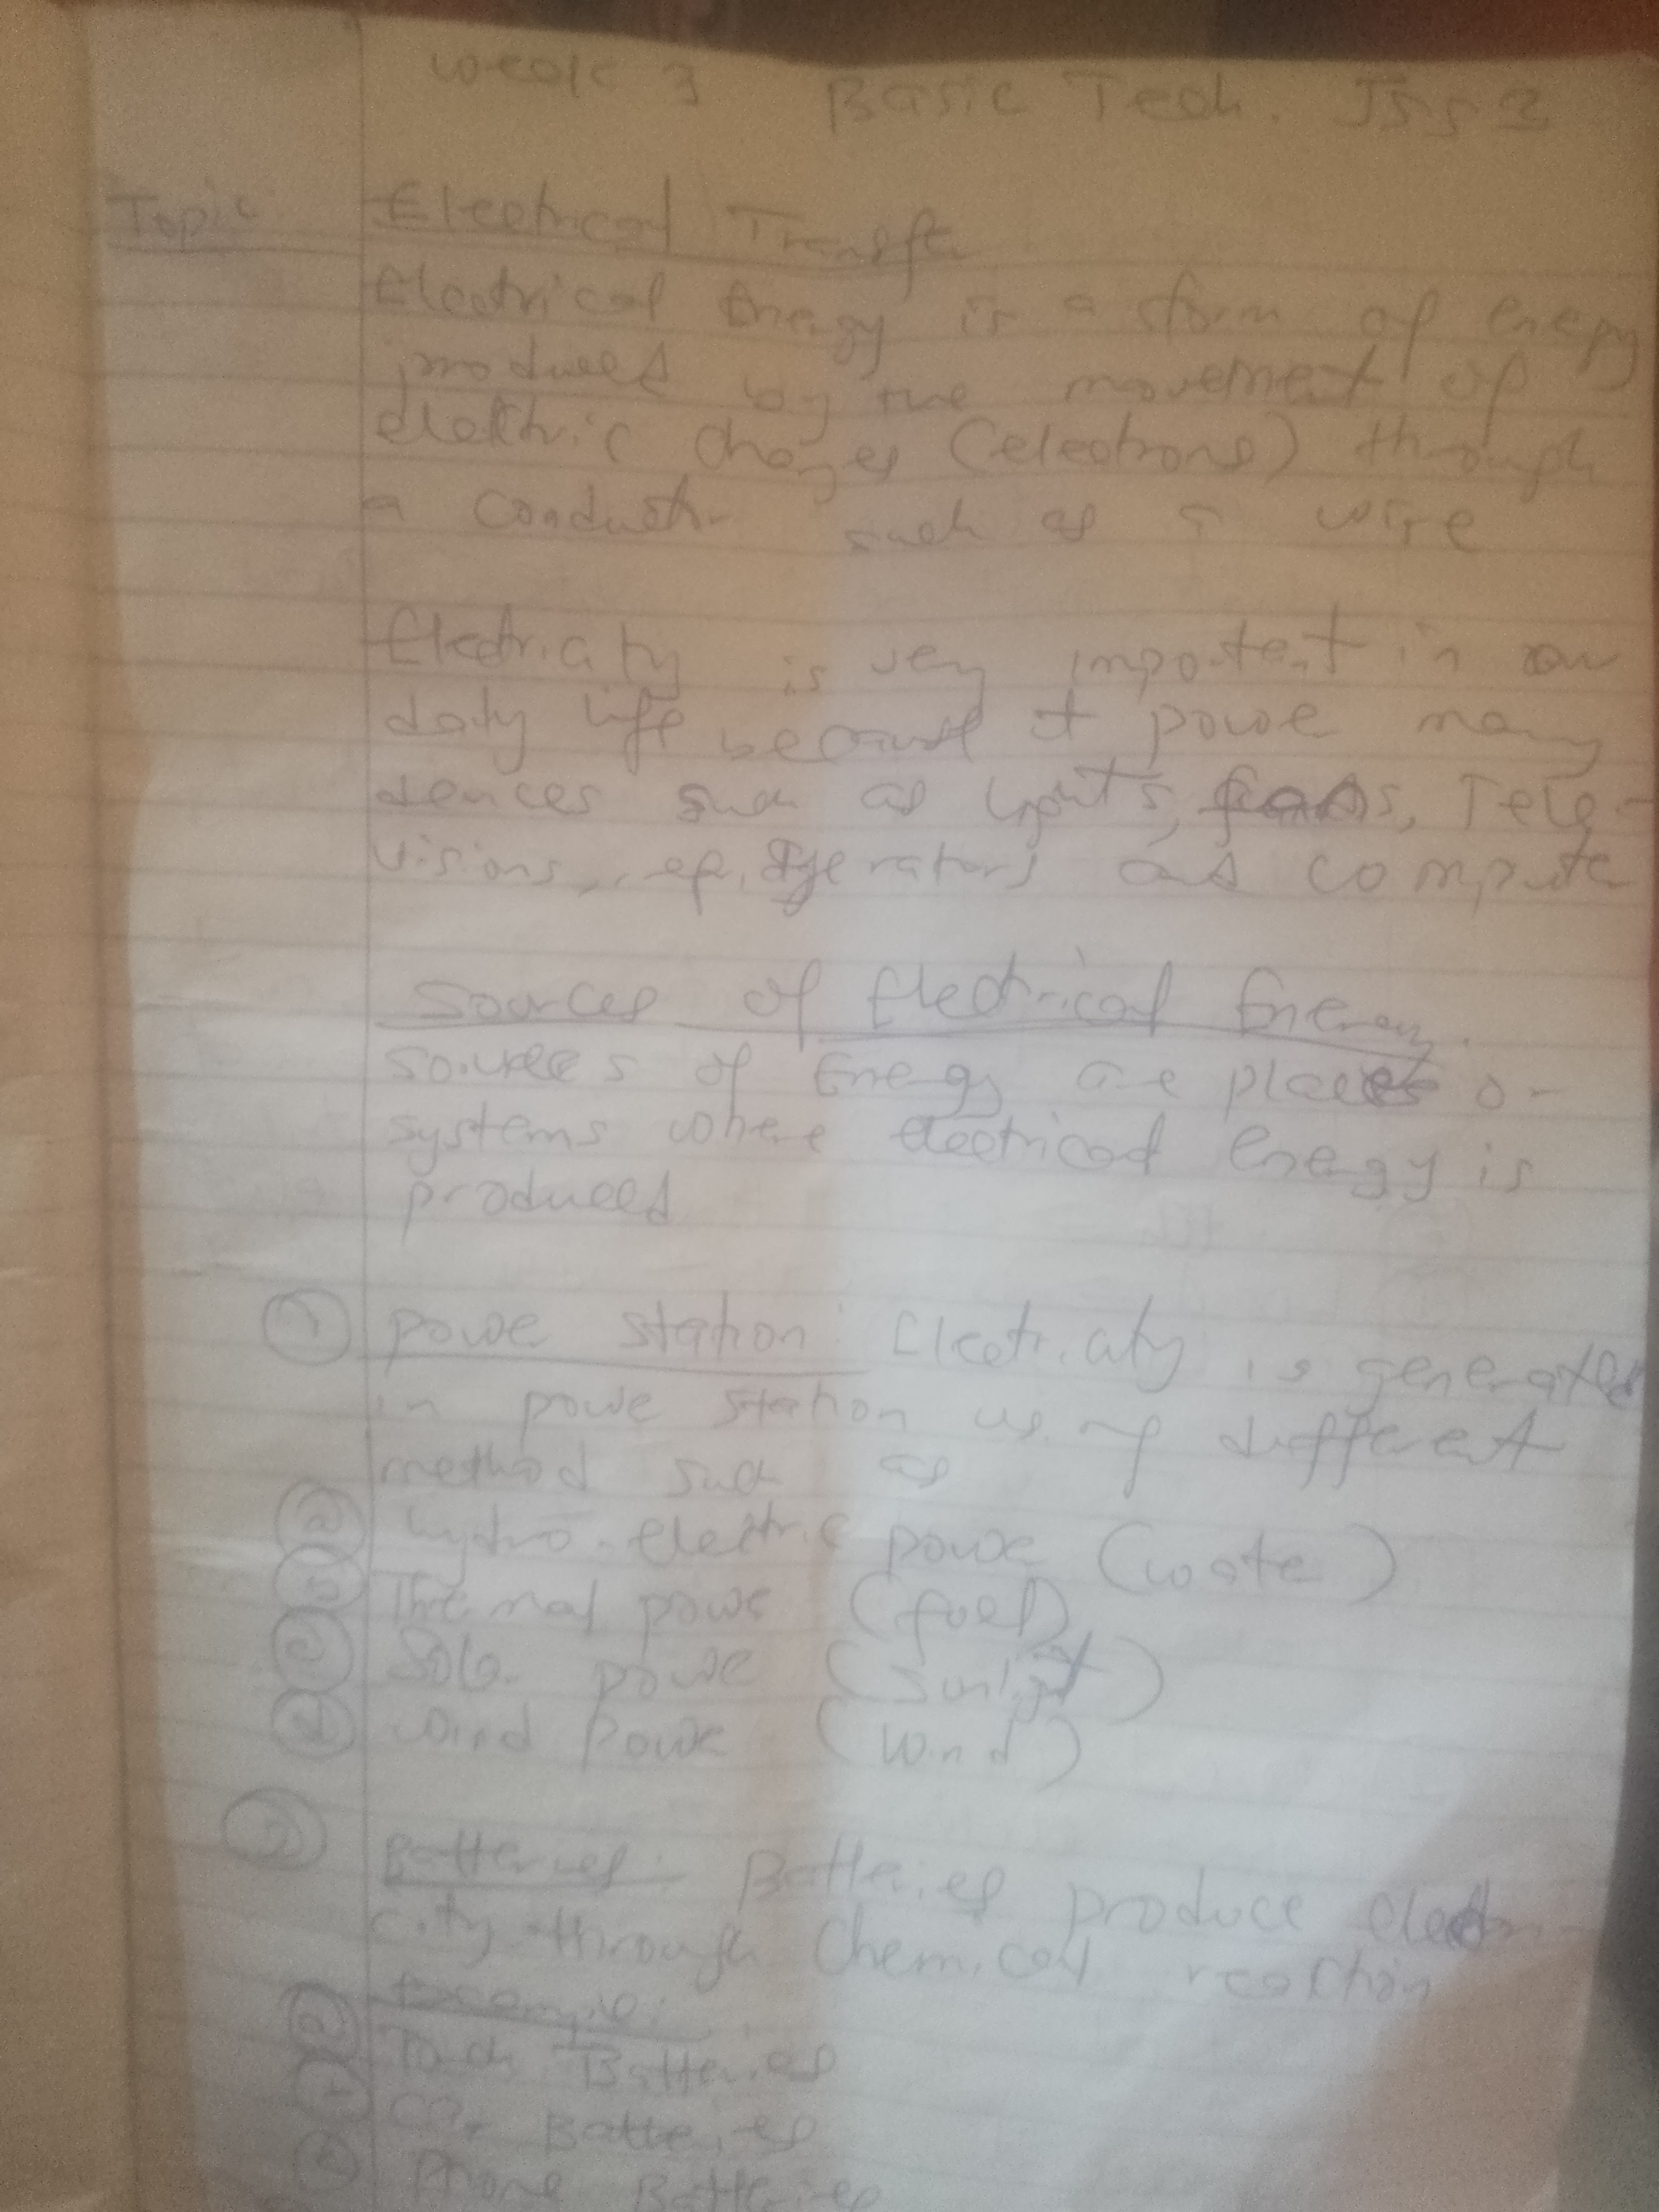 Week 3 Basic Tech. JSS 2
Topic Electrical Transfer
Electrical Energy is a form of energy
produced by the movement of
electric charges (electrons) through
a conductor such as a wire
Electricity is very important in our
daily life because it power many
devices such as lights, fans, Tele-
visions, refridgerators and computer
Sources of Electrical Energy.
Sources of Energy are places or
systems where electrical energy is
produced
① Power station: Electricity is generated
in power station using different
method such as
ⓐ hydro-electric power (water)
ⓑ Thermal power (fuel)
ⓒ Solar power (sunlight)
ⓓ Wind Power (wind)
② Batteries: Batteries produce electri-
city through Chemical reaction
Example:
ⓐ Torch Batteries
ⓑ Car Batteries
ⓒ Phone Batteries